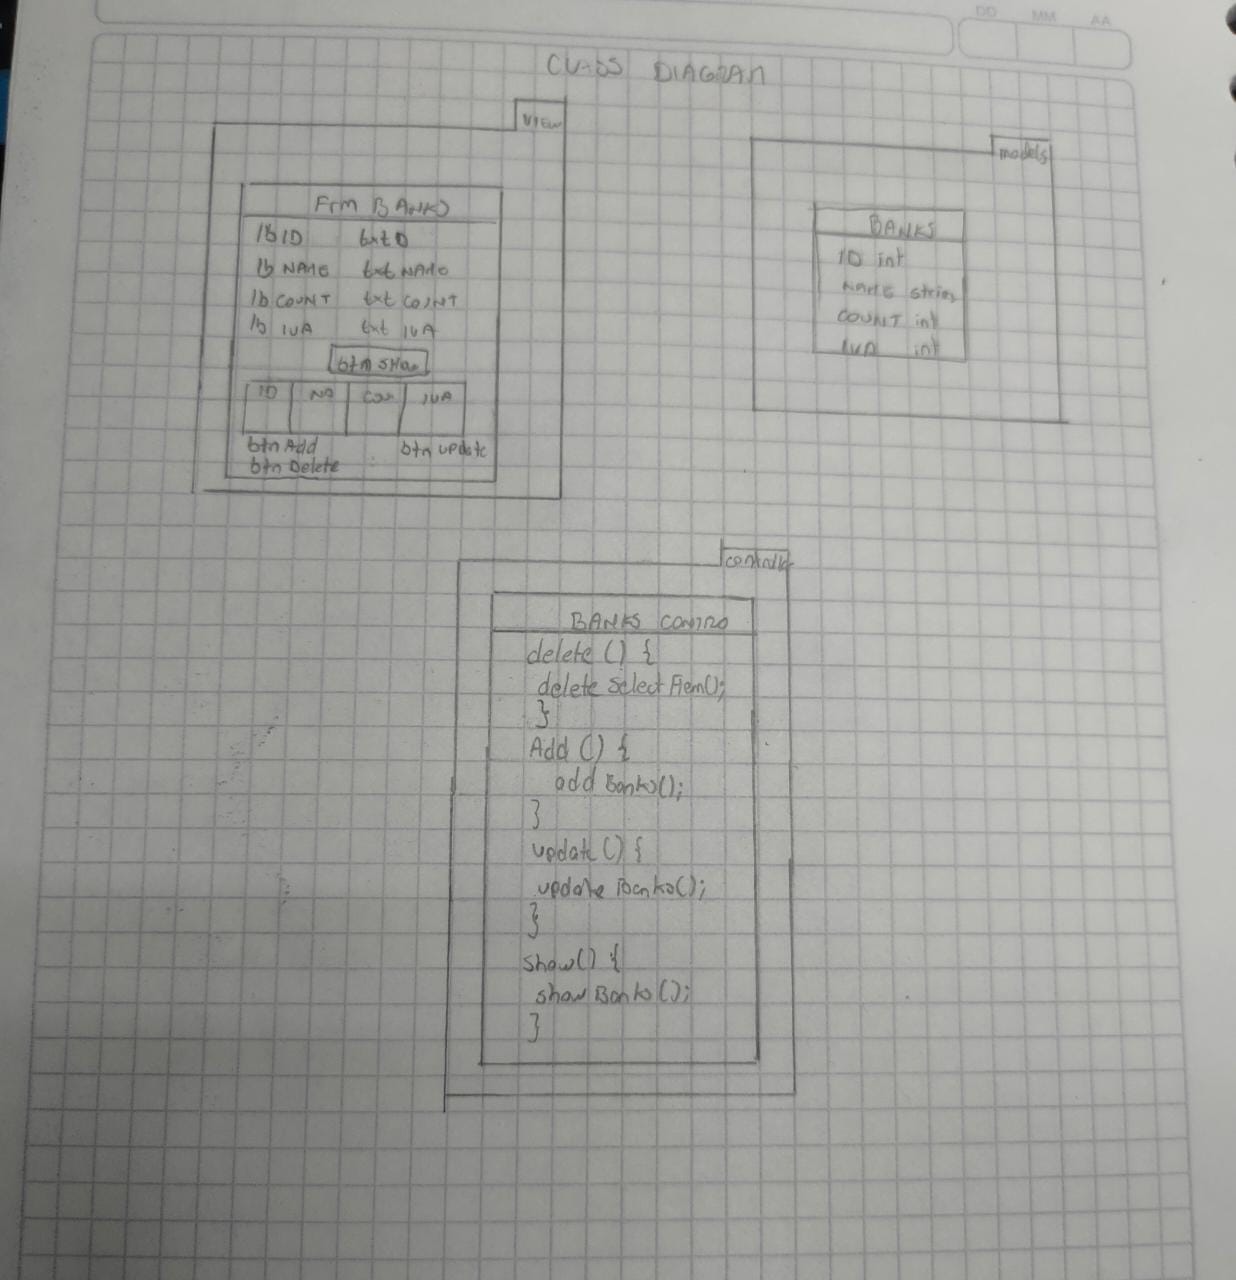 DD MM AA
CLASS DIAGRAM
VIEW
Frm BANKS
lb ID txt D
lb NAME txt NAME
lb COUNT txt COUNT
lb IVA txt IVA
btn Show
ID NA Cou IVA
btn Add btn update
btn Delete
models
BANKS
ID int
NAME string
COUNT int
IVA int
BANKS CONTRO
delete () {
delete Select Item();
}
Add () {
add Banks();
}
update () {
update Banks();
}
show() {
show Banks();
}